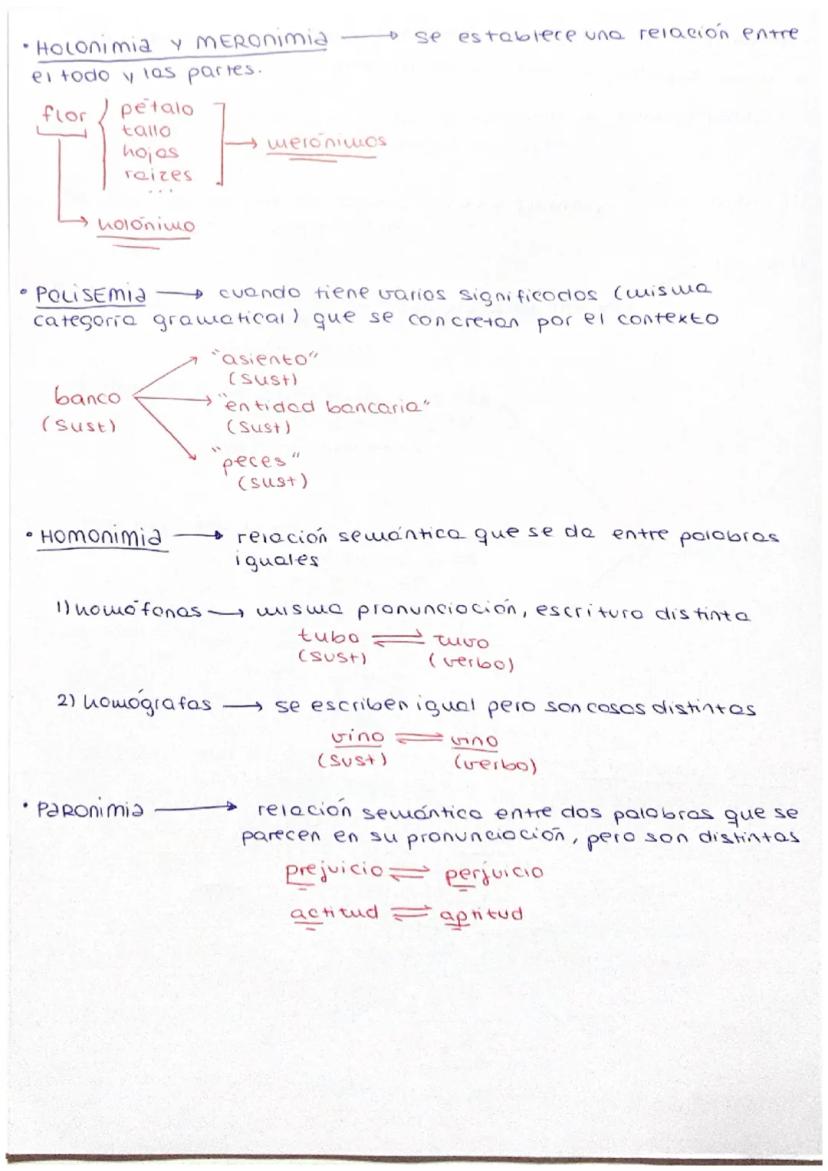 • HOLONIMIA Y MERONIMIA → se establece una relación entre
el todo y las partes.
flor { pétalo
tallo
hojas
raizes
... ] → merónimos
→ holónimo
• POLISEMIA → cuando tiene varios significados (misma
categoría gramatical) que se concretan por el contexto
"asiento"
(sust)
banco → "entidad bancaria"
(sust) (sust)
"peces"
(sust)
• HOMONIMIA → relación semántica que se da entre palabras
iguales
1) homófonas → misma pronunciación, escritura distinta
tubo ⇌ tuvo
(sust) (verbo)
2) homógrafas → se escriben igual pero son cosas distintas
vino ⇌ vino
(sust) (verbo)
• PARONIMIA → relación semántica entre dos palabras que se
parecen en su pronunciación, pero son distintas
prejuicio ⇌ perjuicio
actitud ⇌ aptitud